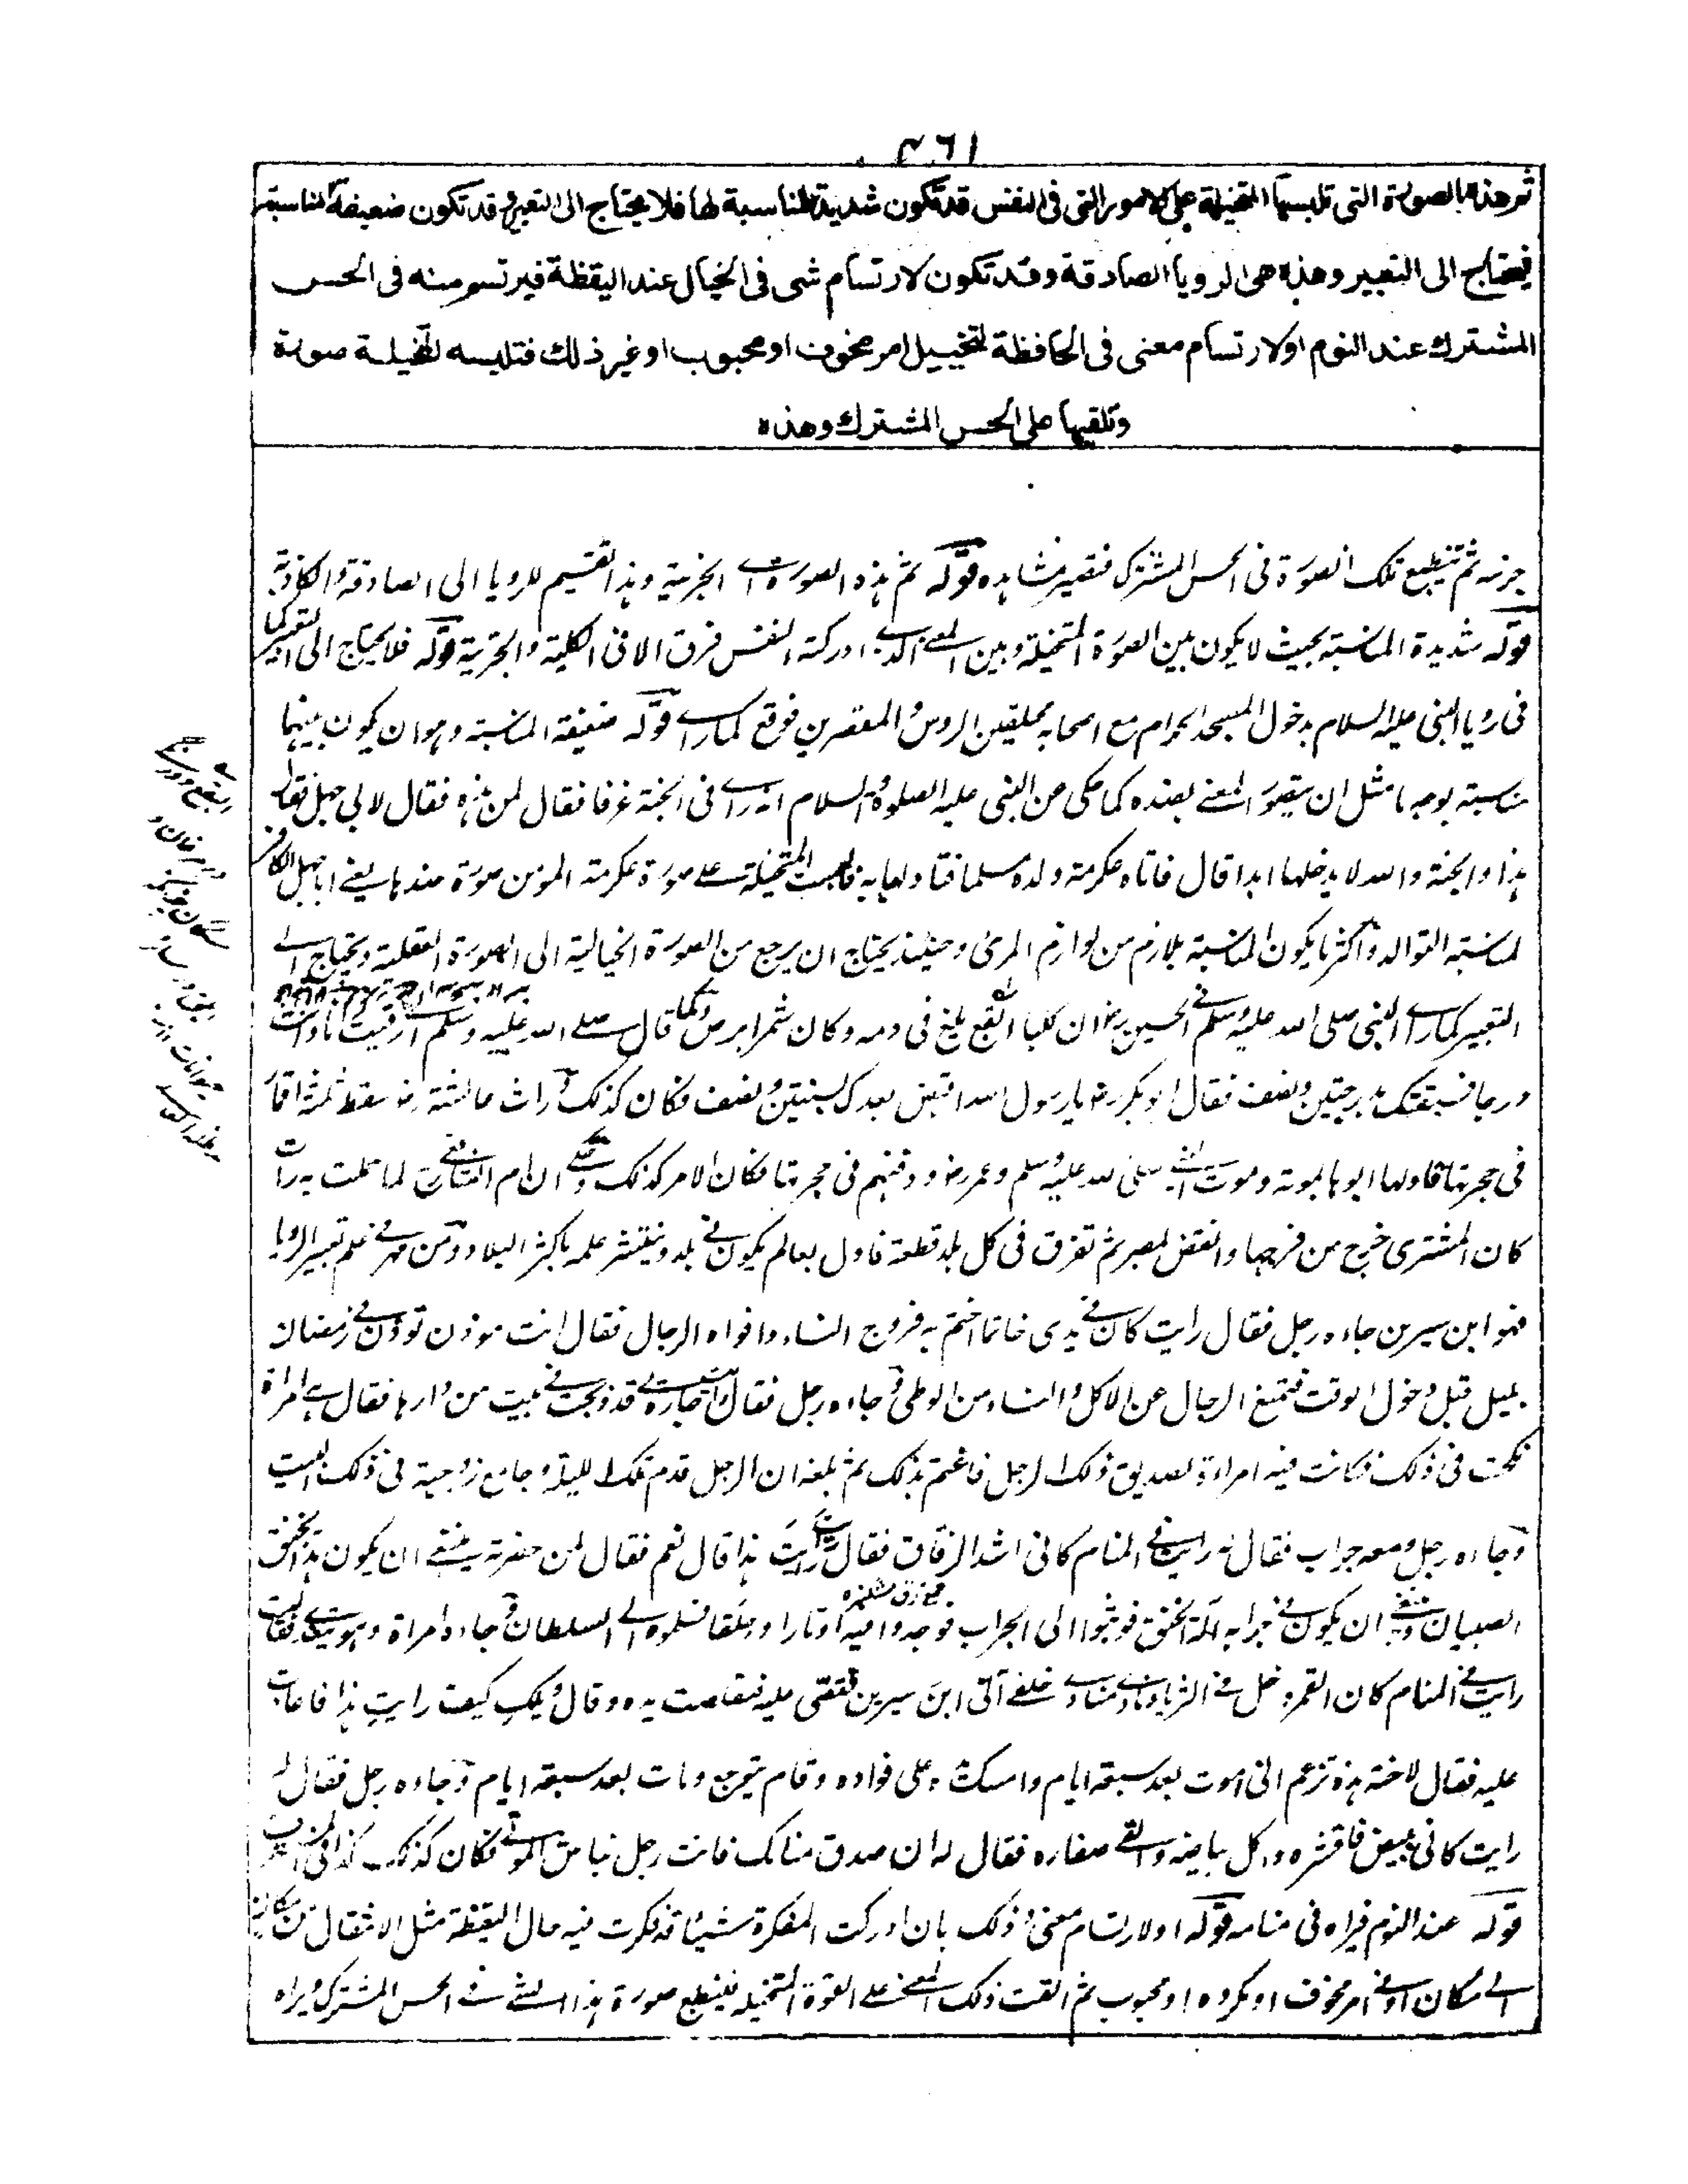 ٤٦١
ثم هذه الصورة التي تلبسها المتخيلة على الامور التي في النفس قد تكون شديدة المناسبة لها فلا يحتاج الى التعبير وقد تكون ضعيفة المناسبة
فيحتاج الى التعبير وهذه هي الرويا الصادقة وقد تكون لارتسام شي في الخيال عند اليقظة فيرتسم منه في الحس
المشترك عند النوم او لارتسام معنى في الحافظة لتخييل امر مخوف او محبوب او غير ذلك فتلبسه المتخيلة صورة
وتلقيها على الحس المشترك وهذه
جزئية ثم تنطبع تلك الصورة في الحس المشترك فتصير مشاهدة قوله ثم هذه الصورة اى الجزئية وهذا تقسيم للرويا الى الصادقة والكاذبة
قوله شديدة المناسبة بحيث لا يكون بين الصورة المتخيلة وبين المعنى الذي ادركته النفس فرق الا في الكلية والجزئية قوله فلا يحتاج الى التعبير كما
في رويا النبي عليه السلام بدخول المسجد الحرام مع اصحابه محلقين الروس والمقصرين فوقع كما راى قوله ضعيفة المناسبة وهو ان يكون بينهما
مناسبة بوجه ما مثل ان يتصور المعنى بضده كما حكى عن النبي عليه الصلوة والسلام انه راى في الجنة غرفا فقال لمن هذه فقال لابي جهل فقال
هذا والجنة والله لا يدخلها ابدا قال فاتاه عكرمة ولده مسلما فتاولها به فالبست المتخيلة على صورة عكرمة المومن صورة ضدها يعنى ابا جهل الكافر
لمناسبة التوالد واكثر ما يكون المناسبة بلازم من لوازم المرئ وحينئذ يحتاج ان يرجع من الصورة الخيالية الى الصورة العقلية ويحتاج الى
التعبير كما راى النبي صلى الله عليه وسلم في الحسين رض ان كلبا ابقع يلغ في دمه وكان شمر ابرص وكما قال صلى الله عليه وسلم
درجا فسبقتك بدرجتين ونصف فقال ابو بكر رض يا رسول الله اقبض بعدك بسنتين ونصف فكان كذلك ورات عائشة رض سقط ثلثة اقمار
في حجرتها فاولها ابوها بموته وموت النبي صلى الله عليه وسلم وعمر رض ودفنهم في حجرتها فكان الامر كذلك وحكى ان ام الشافعي لما حملت به رات
كان المشترى خرج من فرجها وانقض بمصر ثم تفرق في كل بلد قطعة فاول بعالم يكون في بلد وينتشر علمه باكثر البلاد ومن مهر في علم تعبير الرويا
فهو ابن سيرين جاءه رجل فقال رايت كان في يدي خاتما اختم به فروج النساء وافواه الرجال فقال انت موذن توذن في رمضان
بليل قبل دخول الوقت فتمنع الرجال عن الاكل والنساء من الوطى وجاءه رجل فقال رايت جارة لي قد ذبحت في بيت من دارها فقال هي امراة
نكحت في ذلك فكانت فيه امراة لصديق ذلك الرجل فاغتم بذلك ثم بلغه ان الرجل قدم تلك الليلة وجامع زوجته في ذلك البيت
وجاءه رجل ومعه جراب فقال له رايت في المنام كاني اشد الزقاق فقال انت رايت هذا قال نعم فقال لمن حضرته ينبغي ان يكون هذا يخنق
الصبيان وينبغي ان يكون في جرابه آلة الخنق فوثبوا الى الجراب فوجدوا فيه اوتارا وحلقا فسلموه الى السلطان وجاءه امراة وهو يتغدى فقالت
رايت في المنام كان القمر دخل في الثريا ونادى مناد من خلفي ائتى ابن سيرين فقصى عليه فتقلصت يده وقال ويلك كيف رايت هذا فاعادت
عليه فقال لاخته هذه تزعم اني اموت بعد سبعة ايام وامسك يده على فواده وقام يتوجع ومات بعد سبعة ايام وجاءه رجل فقال له
رايت كاني ابيض فاقشره واكل بياضه والقى صفاره فقال له ان صدق منامك فانت رجل نباش الموتى فكان كذلك كذا في
قوله عند النوم فيراه في منامه قوله او لارتسام معنى وذلك بان ادركت المفكرة شيئا قد فكرت فيه حال اليقظة مثل الانتقال من مكان
الى مكان او في امر مخوف او مكروه او محبوب ثم القت ذلك المعنى على القوة المتخيلة فينطبع صورة هذا الشي في الحس المشترك ويراه